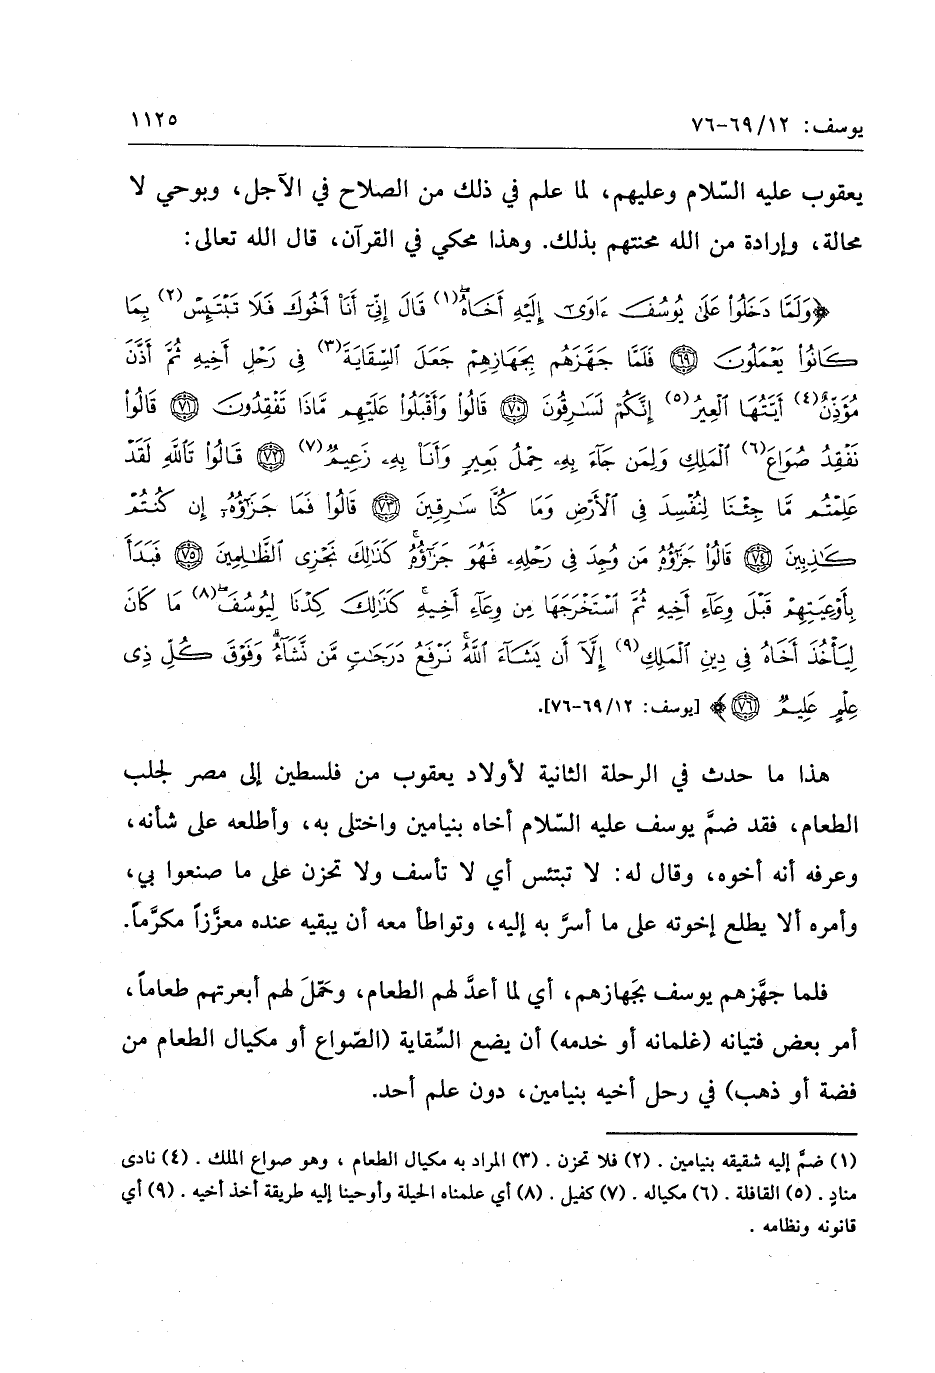 يوسف: ١٢/ ٦٩-٧٦
١١٢٥
يعقوب عليه السّلام وعليهم، لما علم في ذلك من الصلاح في الآجل، وبوحي لا
محالة، وإرادة من الله محنتهم بذلك. وهذا محكي في القرآن، قال الله تعالى:
﴿وَلَمَّا دَخَلُوا۟ عَلَىٰ يُوسُفَ ءَاوَىٰٓ إِلَيْهِ أَخَاهُ ۖ(١) قَالَ إِنِّىٓ أَنَا۠ أَخُوكَ فَلَا تَبْتَئِسْ(٢) بِمَا
كَانُوا۟ يَعْمَلُونَ ٦٩ فَلَمَّا جَهَّزَهُم بِجَهَازِهِمْ جَعَلَ ٱلسِّقَايَةَ(٣) فِى رَحْلِ أَخِيهِ ثُمَّ أَذَّنَ
مُؤَذِّنٌ(٤) أَيَّتُهَا ٱلْعِيرُ(٥) إِنَّكُمْ لَسَـٰرِقُونَ ٧٠ قَالُوا۟ وَأَقْبَلُوا۟ عَلَيْهِم مَّاذَا تَفْقِدُونَ ٧١ قَالُوا۟
نَفْقِدُ صُوَاعَ(٦) ٱلْمَلِكِ وَلِمَن جَآءَ بِهِۦ حِمْلُ بَعِيرٍ وَأَنَا۠ بِهِۦ زَعِيمٌ(٧) ٧٢ قَالُوا۟ تَٱللَّهِ لَقَدْ
عَلِمْتُم مَّا جِئْنَا لِنُفْسِدَ فِى ٱلْأَرْضِ وَمَا كُنَّا سَـٰرِقِينَ ٧٣ قَالُوا۟ فَمَا جَزَٰٓؤُهُۥٓ إِن كُنتُمْ
كَـٰذِبِينَ ٧٤ قَالُوا۟ جَزَٰٓؤُهُۥ مَن وُجِدَ فِى رَحْلِهِۦ فَهُوَ جَزَٰٓؤُهُۥ ۚ كَذَٰلِكَ نَجْزِى ٱلظَّـٰلِمِينَ ٧٥ فَبَدَأَ
بِأَوْعِيَتِهِمْ قَبْلَ وِعَآءِ أَخِيهِ ثُمَّ ٱسْتَخْرَجَهَا مِن وِعَآءِ أَخِيهِ ۚ كَذَٰلِكَ كِدْنَا لِيُوسُفَ ۖ(٨) مَا كَانَ
لِيَأْخُذَ أَخَاهُ فِى دِينِ ٱلْمَلِكِ(٩) إِلَّآ أَن يَشَآءَ ٱللَّهُ ۚ نَرْفَعُ دَرَجَـٰتٍ مَّن نَّشَآءُ ۗ وَفَوْقَ كُلِّ ذِى
عِلْمٍ عَلِيمٌ ٧٦﴾ [يوسف: ١٢/ ٦٩-٧٦].
هذا ما حدث في الرحلة الثانية لأولاد يعقوب من فلسطين إلى مصر لجلب
الطعام، فقد ضمَّ يوسف عليه السّلام أخاه بنيامين واختلى به، وأطلعه على شأنه،
وعرفه أنه أخوه، وقال له: لا تبتئس أي لا تأسف ولا تحزن على ما صنعوا بي،
وأمره ألا يطلع إخوته على ما أسرَّ به إليه، وتواطأ معه أن يبقيه عنده معزَّزاً مكرَّماً.
فلما جهَّزهم يوسف بجَهازهم، أي لما أعدَّ لهم الطعام، وحمّلَ لهم أبعرتهم طعاماً،
أمر بعض فتيانه (غلمانه أو خدمه) أن يضع السِّقاية (الصّواع أو مكيال الطعام من
فضة أو ذهب) في رحل أخيه بنيامين، دون علم أحد.
(١) ضمَّ إليه شقيقه بنيامين . (٢) فلا تحزن . (٣) المراد به مكيال الطعام ، وهو صواع الملك . (٤) نادى
منادٍ . (٥) القافلة . (٦) مكياله . (٧) كفيل . (٨) أي علمناه الحيلة وأوحينا إليه طريقة أخذ أخيه . (٩) أي
قانونه ونظامه .